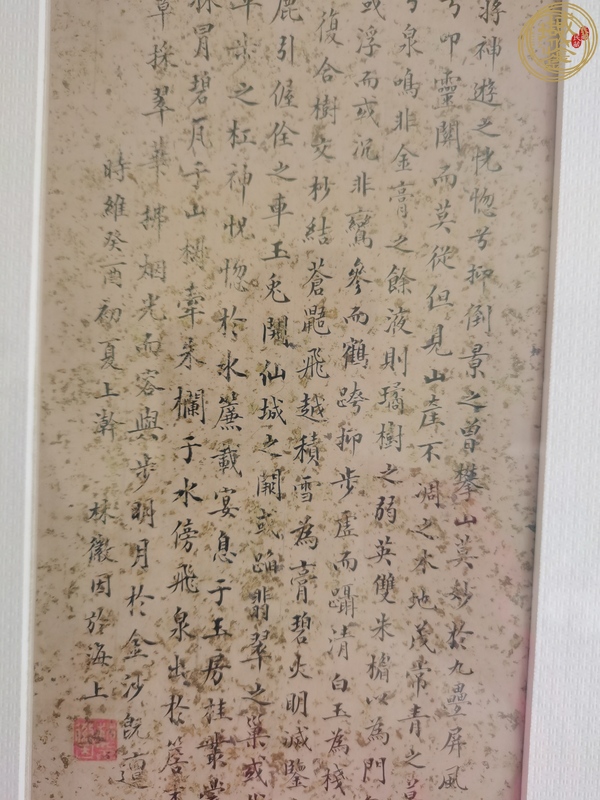 將神遊之恍惚兮抑倒景之曾攀山莫妙於九疊屏風
兮叩靈關而莫從但見山產不凋之木地茂常青之草
兮泉鳴非金膏之餘液則璚樹之弱英雙朱橘以為門
或浮而或沉非鸞驂而鶴跨抑步虛而躡清白玉為棧
復合樹交杪結蒼鼯飛越積雪為膏碧火明滅
鹿引偓佺之車玉兔闢仙城之闕或踰翡翠之巢或
之杠神恍惚於水簾載宴息于玉房桂叢
冒碧瓦于山樹牽朱欄于水傍飛泉出於簷
草採翠華拂烟光而容與步明月於金沙既遭
時維癸酉初夏上澣 林徽因於海上